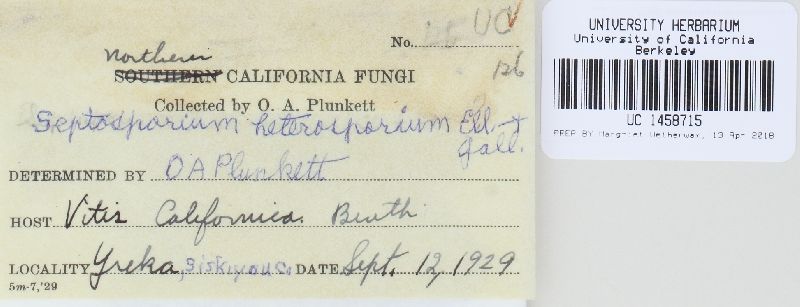 No. UC
126
Northern
SOUTHERN CALIFORNIA FUNGI
Collected by O. A. Plunkett
Septosporium heterosporium Ell. +
Gall.
DETERMINED BY O A Plunkett
HOST Vitis Californica. Benth
LOCALITY Yreka, Siskiyou Co. DATE Sept. 12, 1929
5m-7,'29
UNIVERSITY HERBARIUM
University of California
Berkeley
UC 1458715
PREP BY Margriet Wetherwax, 13 Apr 2018